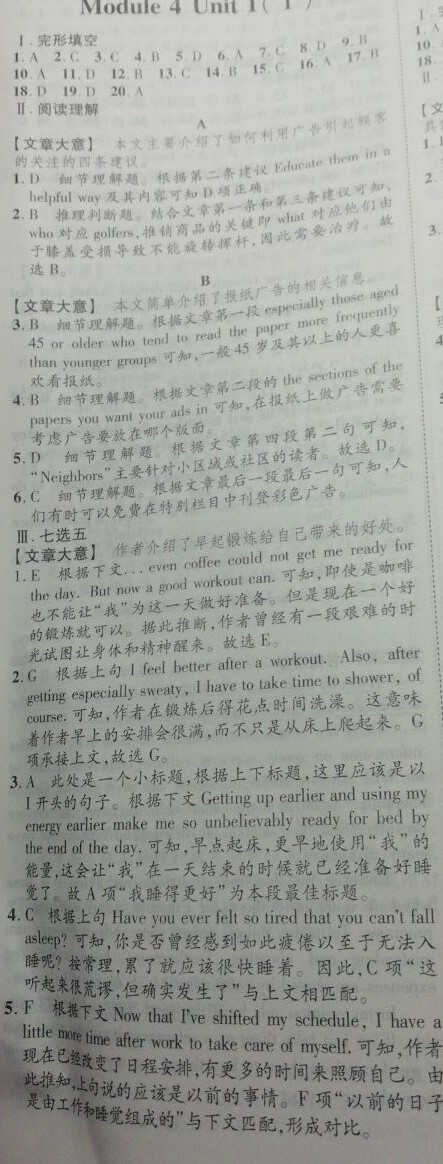 Module 4 Unit 1(Ⅰ)
Ⅰ.完形填空
1. A 2. C 3. C 4. B 5. D 6. A 7. C 8. D 9. B
10. A 11. D 12. B 13. C 14. B 15. C 16. A 17. B
18. D 19. D 20. A
Ⅱ.阅读理解
A
【文章大意】 本文主要介绍了如何利用广告引起顾客
的关注的四条建议。
1. D 细节理解题。根据第二条建议 Educate them in a
helpful way 及其内容可知 D 项正确。
2. B 推理判断题。结合文章第一条和第三条建议可知,
who 对应 golfers,推销商品的关键即 what 对应他们由
于膝盖受损导致不能旋转挥杆,因此需要治疗。故
选 B。
B
【文章大意】 本文简单介绍了报纸广告的相关信息。
3. B 细节理解题。根据文章第一段 especially those aged
45 or older who tend to read the paper more frequently
than younger groups 可知,一般 45 岁及其以上的人更喜
欢看报纸。
4. B 细节理解题。根据文章第二段的 the sections of the
papers you want your ads in 可知,在报纸上做广告需要
考虑广告要放在哪个版面。
5. D 细节理解题。根据文章第四段第二句可知,
“Neighbors”主要针对小区域或社区的读者。故选 D。
6. C 细节理解题。根据文章最后一段最后一句可知,人
们有时可以免费在特别栏目中刊登彩色广告。
Ⅲ.七选五
【文章大意】 作者介绍了早起锻炼给自己带来的好处。
1. E 根据下文... even coffee could not get me ready for
the day. But now a good workout can. 可知,即使是咖啡
也不能让“我”为这一天做好准备。但是现在一个好
的锻炼就可以。据此推断,作者曾经有一段艰难的时
光试图让身体和精神醒来。故选 E。
2. G 根据上句 I feel better after a workout. Also, after
getting especially sweaty, I have to take time to shower, of
course. 可知,作者在锻炼后得花点时间洗澡。这意味
着作者早上的安排会很满,而不只是从床上爬起来。G
项承接上文,故选 G。
3. A 此处是一个小标题,根据上下标题,这里应该是以
I 开头的句子。根据下文 Getting up earlier and using my
energy earlier make me so unbelievably ready for bed by
the end of the day. 可知,早点起床,更早地使用“我”的
能量,这会让“我”在一天结束的时候就已经准备好睡
觉了。故 A 项“我睡得更好”为本段最佳标题。
4. C 根据上句 Have you ever felt so tired that you can't fall
asleep? 可知,你是否曾经感到如此疲倦以至于无法入
睡呢? 按常理,累了就应该很快睡着。因此,C 项“这
听起来很荒谬,但确实发生了”与上文相匹配。
5. F 根据下文 Now that I've shifted my schedule, I have a
little more time after work to take care of myself. 可知,作者
现在已经改变了日程安排,有更多的时间来照顾自己。由
此推知,上句说的应该是以前的事情。F 项“以前的日子
是由工作和睡觉组成的”与下文匹配,形成对比。